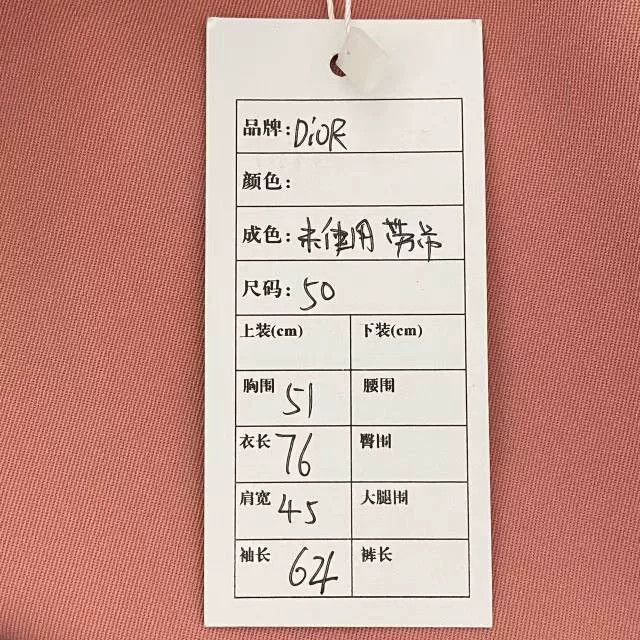 品牌: DiOR
颜色:
成色: 未使用 带吊卡
尺码: 50
上装(cm) 下装(cm)
胸围 51 腰围
衣长 76 臀围
肩宽 45 大腿围
袖长 64 裤长